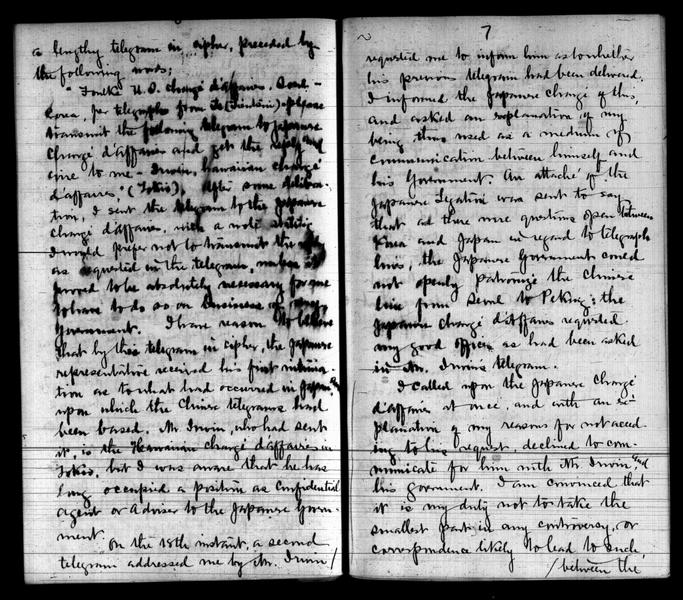 a lengthy telegram in cipher, preceded by
the following words;
"Foulk U.S. chargé d'affaires. Seoul -
Korea, per telegraph from To (Tientsin) - please
transmit the following telegram to Japanese
chargé d'affaires and get the reply and
wire to me - Irwin, Hawaiian chargé
d'affaires," (Tokio). After some delibera-
tion, I sent the telegram to the Japanese
chargé d'affaires, with a note stating
I would prefer not to transmit the
as requested in the telegram, unless it
proved to be absolutely necessary for me
to have to do so on business of my
Government. I have reason to believe
that by this telegram in cipher, the Japanese
representative received his first intima-
tion as to what had occurred in Japan, and
upon which the Chinese telegrams had
been based. Mr. Irwin, who had sent
it, is the Hawaiian chargé d'affaires in
Tokio, but I was aware that he has
long occupied a position as confidential
agent or adviser to the Japanese Govern-
ment.
On the 18th instant, a second
telegram addressed me by Mr. Irwin/
7
requested me to inform him as to whether
his previous telegram had been delivered.
I informed the Japanese chargé of this,
and asked an explanation of my
being thus used as a medium of
communication between himself and
his Government. An attaché of the
Japanese Legation was sent to say
that as there were questions open between
Korea and Japan in regard to telegraph
lines, the Japanese Government could
not openly patronize the Chinese
line from Seoul to Peking; the
Japanese chargé d'affaires requested
my good offices as had been asked
in Mr. Irwin's telegram.
I called upon the Japanese chargé
d'affaires at once, and with an ex-
planation of my reasons for not acced-
ing to his request, declined to com-
municate for him with Mr. Irwin, and
his government. I am convinced that
it is my duty not to take the
smallest part in any controversy, or
correspondence likely to lead to such,
/between the